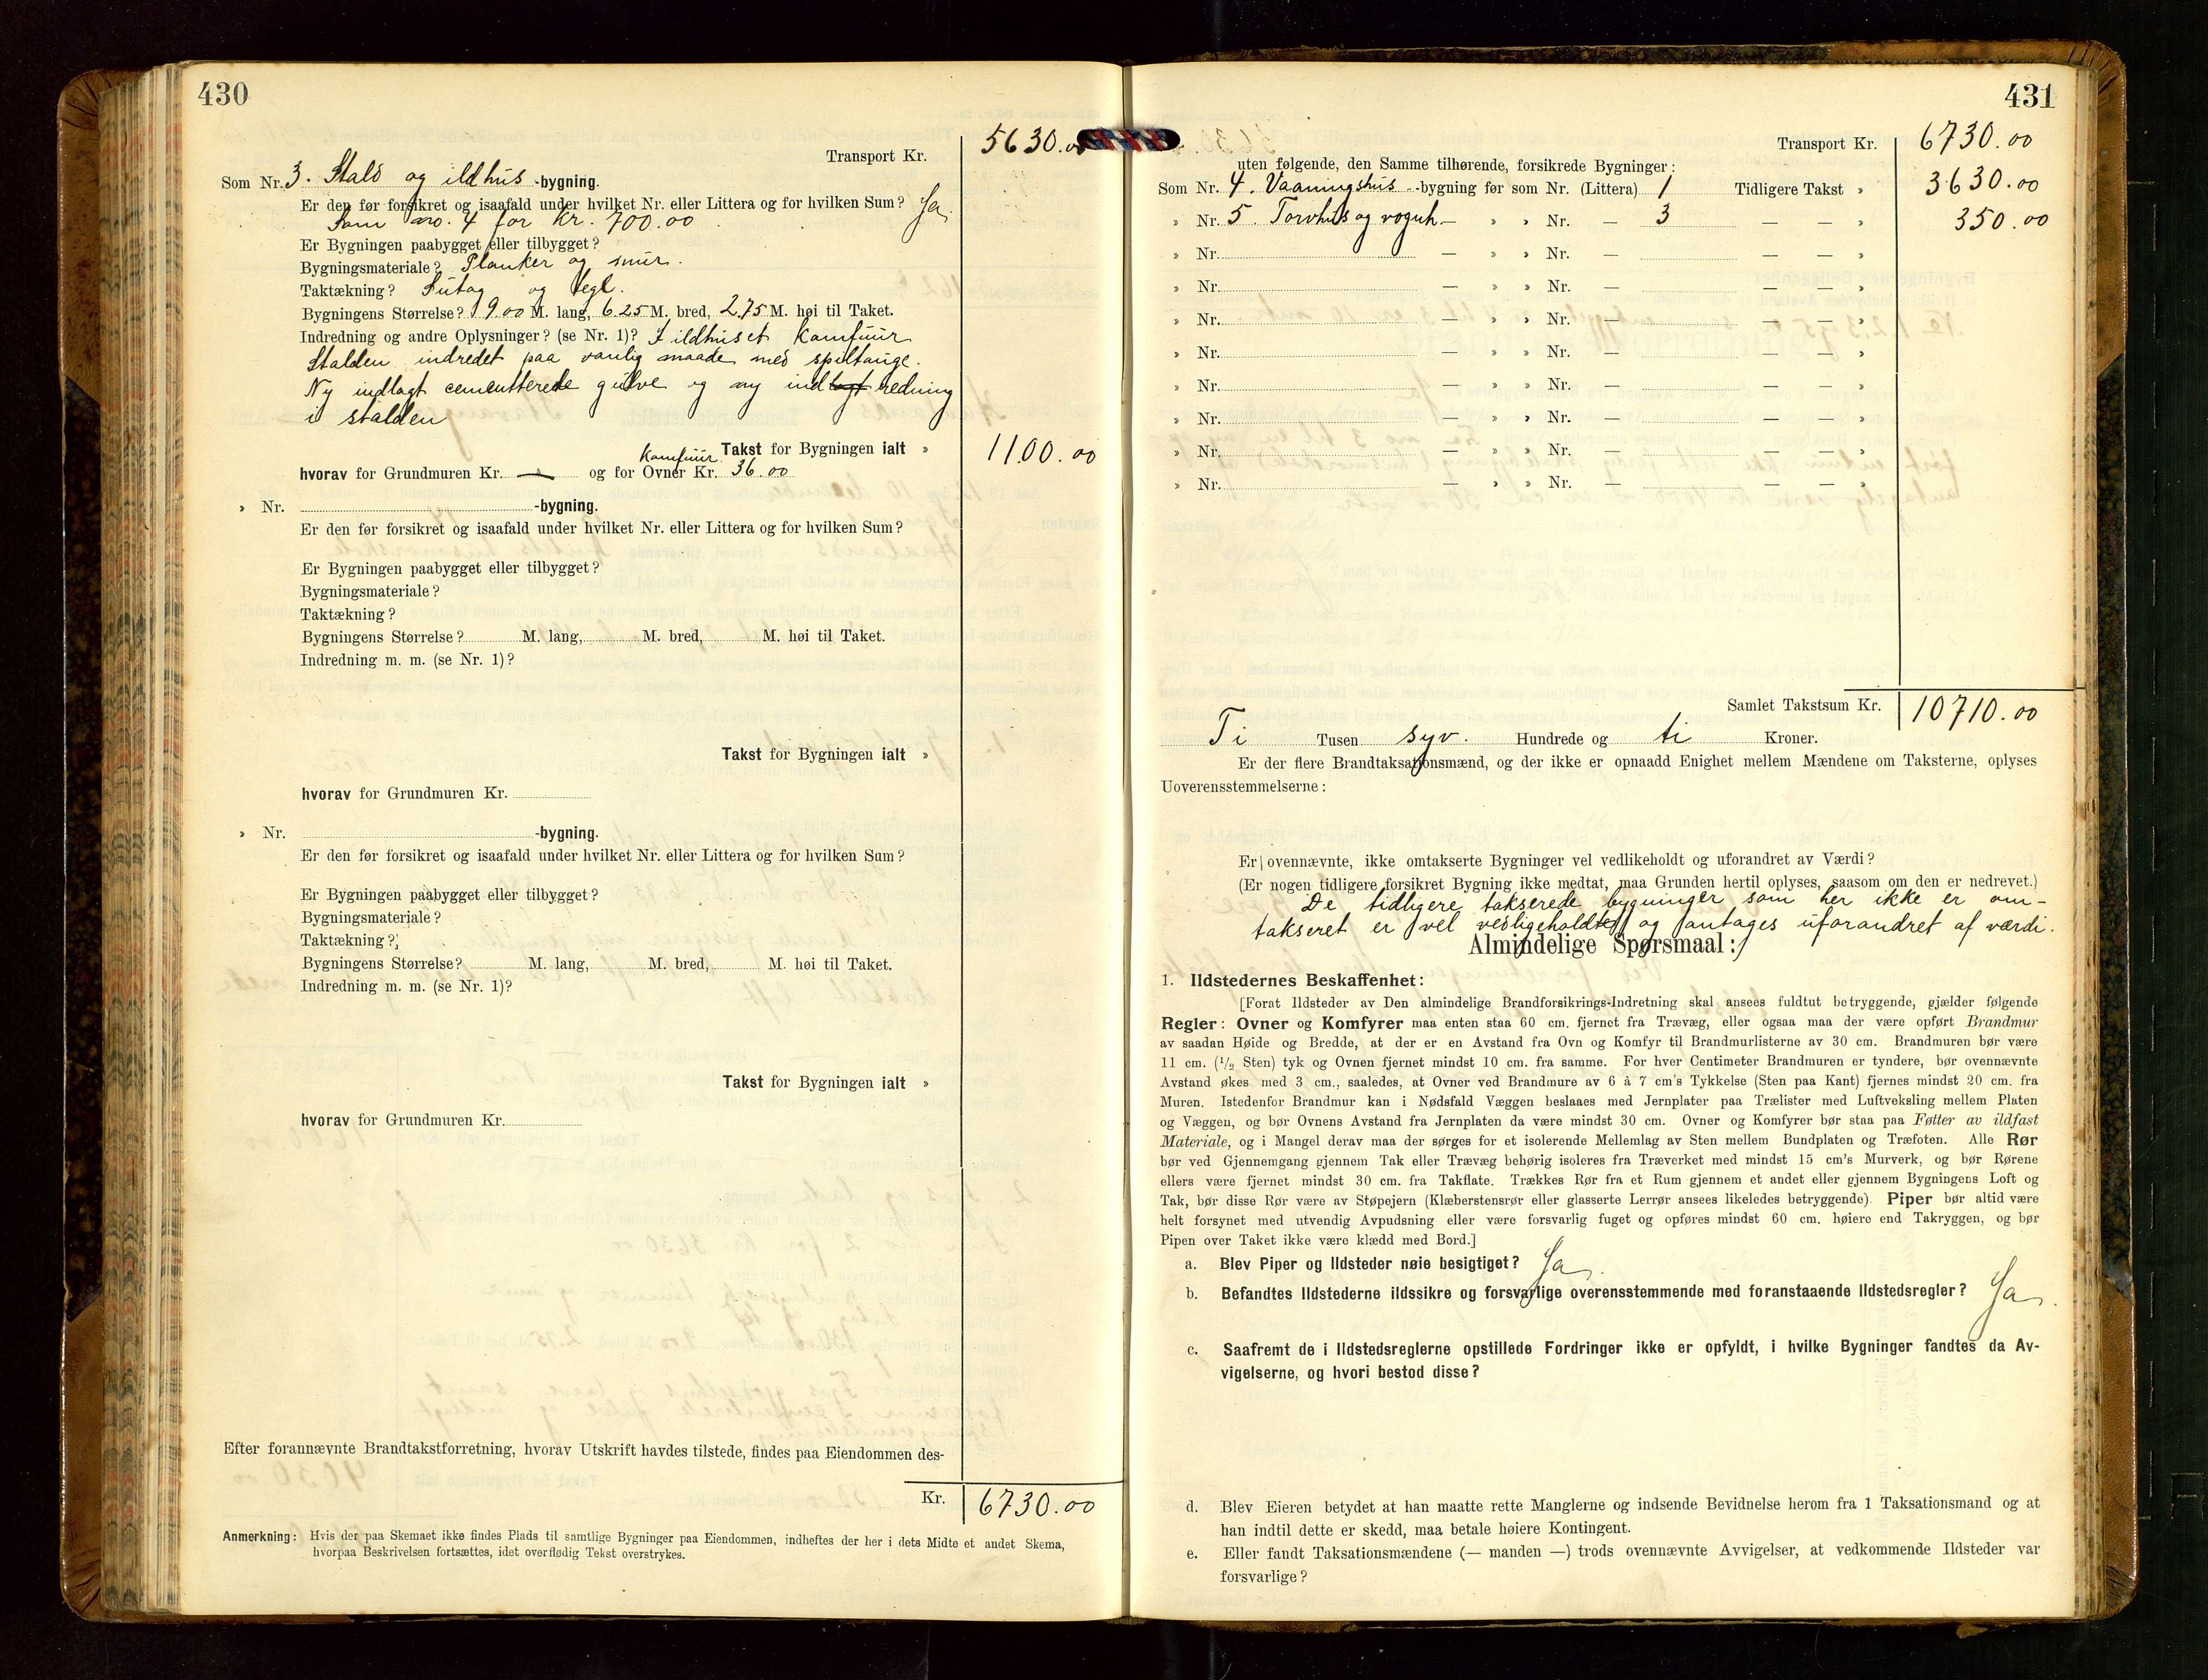 430
Transport Kr. 5630.00
Som Nr. 3. Stald og ildhus -bygning.
Er den før forsikret og isaafald under hvilket Nr. eller Littera og for hvilken Sum? Ja
Som no. 4 for Kr. 700.00
Er Bygningen paabygget eller tilbygget?
Bygningsmateriale? Planker og mur.
Taktækning? Sutag og tegl.
Bygningens Størrelse? 9.00 M. lang, 6.25 M. bred, 2.75 M. høi til Taket.
Indredning og andre Oplysninger? (se Nr. 1)? I ildhuset Komfuur
Stalden indredet paa vanlig maade med spiltauge.
Ny indlagt cementterede gulve og ny indlagt redning
i stalden
Takst for Bygningen ialt » 1100.00
Komfuur
hvorav for Grundmuren Kr. — og for Ovner Kr. 36.00
» Nr. -bygning.
Er den før forsikret og isaafald under hvilket Nr. eller Littera og for hvilken Sum?
Er Bygningen paabygget eller tilbygget?
Bygningsmateriale?
Taktækning?
Bygningens Størrelse? M. lang, M. bred, M. høi til Taket.
Indredning m. m. (se Nr. 1)?
Takst for Bygningen ialt »
hvorav for Grundmuren Kr.
» Nr. -bygning.
Er den før forsikret og isaafald under hvilket Nr. eller Littera og for hvilken Sum?
Er Bygningen paabygget eller tilbygget?
Bygningsmateriale?
Taktækning?
Bygningens Størrelse? M. lang, M. bred, M. høi til Taket.
Indredning m. m. (se Nr. 1)?
Takst for Bygningen ialt »
hvorav for Grundmuren Kr.
Efter forannævnte Brandtakstforretning, hvorav Utskrift havdes tilstede, findes paa Eiendommen des-
Kr. 6730.00
Anmerkning: Hvis der paa Skemaet ikke findes Plads til samtlige Bygninger paa Eiendommen, indheftes der her i dets Midte et andet Skema,
hvorpaa Beskrivelsen fortsættes, idet overflødig Tekst overstrykes.
431
Transport Kr. 6730.00
uten følgende, den Samme tilhørende, forsikrede Bygninger:
Som Nr. 4. Vaaningshus -bygning før som Nr. (Littera) 1 Tidligere Takst » 3630.00
» Nr. 5. Torvhus og vognh — » » Nr. — 3 — — » 350.00
» Nr. — » » Nr. — — — »
» Nr. — » » Nr. — — — »
» Nr. — » » Nr. — — — »
» Nr. — » » Nr. — — — »
» Nr. — » » Nr. — — — »
» Nr. — » » Nr. — — — »
» Nr. — » » Nr. — — — »
» Nr. — » » Nr. — — — »
Samlet Takstsum Kr. 10710.00
Ti Tusen syv. Hundrede og ti Kroner.
Er der flere Brandtaksationsmænd, og der ikke er opnaadd Enighet mellem Mændene om Taksterne, oplyses
Uoverensstemmelserne:
Er ovennævnte, ikke omtakserte Bygninger vel vedlikeholdt og uforandret av Værdi?
(Er nogen tidligere forsikret Bygning ikke medtat, maa Grunden hertil oplyses, saasom om den er nedrevet.)
De tidligere takserede bygninger som her ikke er om-
takseret er vel vedligeholdte og antages uforandret af værdi.
Almindelige Spørsmaal:
1. Ildstedernes Beskaffenhet:
[Forat Ildsteder av Den almindelige Brandforsikrings-Indretning skal ansees fuldtut betryggende, gjælder følgende
Regler: Ovner og Komfyrer maa enten staa 60 cm. fjernet fra Trævæg, eller ogsaa maa der være opført Brandmur
av saadan Høide og Bredde, at der er en Avstand fra Ovn og Komfyr til Brandmurlisterne av 30 cm. Brandmuren bør være
11 cm. (1/2 Sten) tyk og Ovnen fjernet mindst 10 cm. fra samme. For hver Centimeter Brandmuren er tyndere, bør ovennævnte
Avstand økes med 3 cm., saaledes, at Ovner ved Brandmure av 6 à 7 cm's Tykkelse (Sten paa Kant) fjernes mindst 20 cm. fra
Muren. Istedenfor Brandmur kan i Nødsfald Væggen beslaaes med Jernplater paa Trælister med Luftveksling mellem Platen
og Væggen, og bør Ovnens Avstand fra Jernplaten da være mindst 30 cm. Ovner og Komfyrer bør staa paa Føtter av ildfast
Materiale, og i Mangel derav maa der sørges for et isolerende Mellemlag av Sten mellem Bundplaten og Træfoten. Alle Rør
bør ved Gjennemgang gjennem Tak eller Trævæg behørig isoleres fra Træverket med mindst 15 cm's Murverk, og bør Rørene
ellers være fjernet mindst 30 cm. fra Takflate. Trækkes Rør fra et Rum gjennem et andet eller gjennem Bygningens Loft og
Tak, bør disse Rør være av Støpejern (Klæberstensrør eller glasserte Lerrør ansees likeledes betryggende). Piper bør altid være
helt forsynet med utvendig Avpudsning eller være forsvarlig fuget og opføres mindst 60 cm. høiere end Takryggen, og bør
Pipen over Taket ikke være klædd med Bord.]
a. Blev Piper og Ildsteder nøie besigtiget? Ja.
b. Befandtes Ildstederne ildssikre og forsvarlige overensstemmende med foranstaaende Ildstedsregler? Ja.
c. Saafremt de i Ildstedsreglerne opstillede Fordringer ikke er opfyldt, i hvilke Bygninger fandtes da Av-
vigelserne, og hvori bestod disse?
d. Blev Eieren betydet at han maatte rette Manglerne og indsende Bevidnelse herom fra 1 Taksationsmand og at
han indtil dette er skedd, maa betale høiere Kontingent.
e. Eller fandt Taksationsmændene (— manden —) trods ovennævnte Avvigelser, at vedkommende Ildsteder var
forsvarlige?